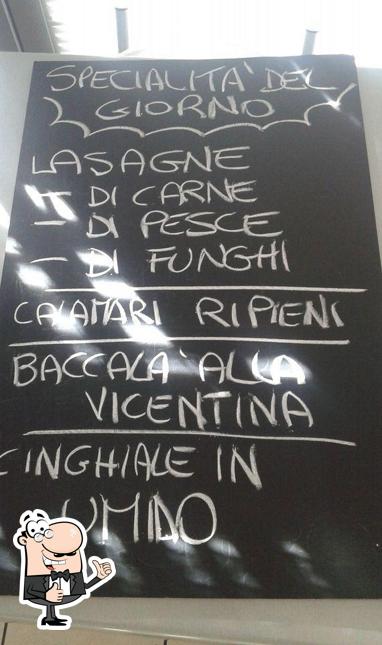 SPECIALITA' DEL
GIORNO
LASAGNE
- DI CARNE
- DI PESCE
- DI FUNGHI
CALAMARI RIPIENI
BACCALA' ALLA
VICENTINA
CINGHIALE IN
UMIDO